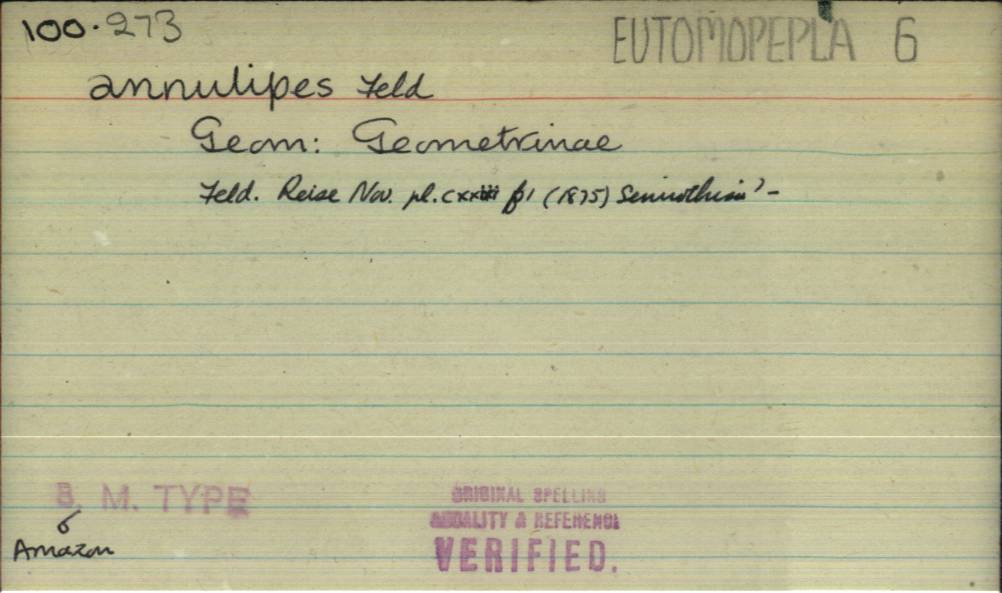 100.273
EUTOMOPEPLA 6
annulipes Feld
Geom: Geometrinae
Feld. Reise Nov. pl. cxxiii f 1 (1875)
B. M. TYPE
Amazon
ORIGINAL SPELLING
LOCALITY & REFERENCE
VERIFIED.